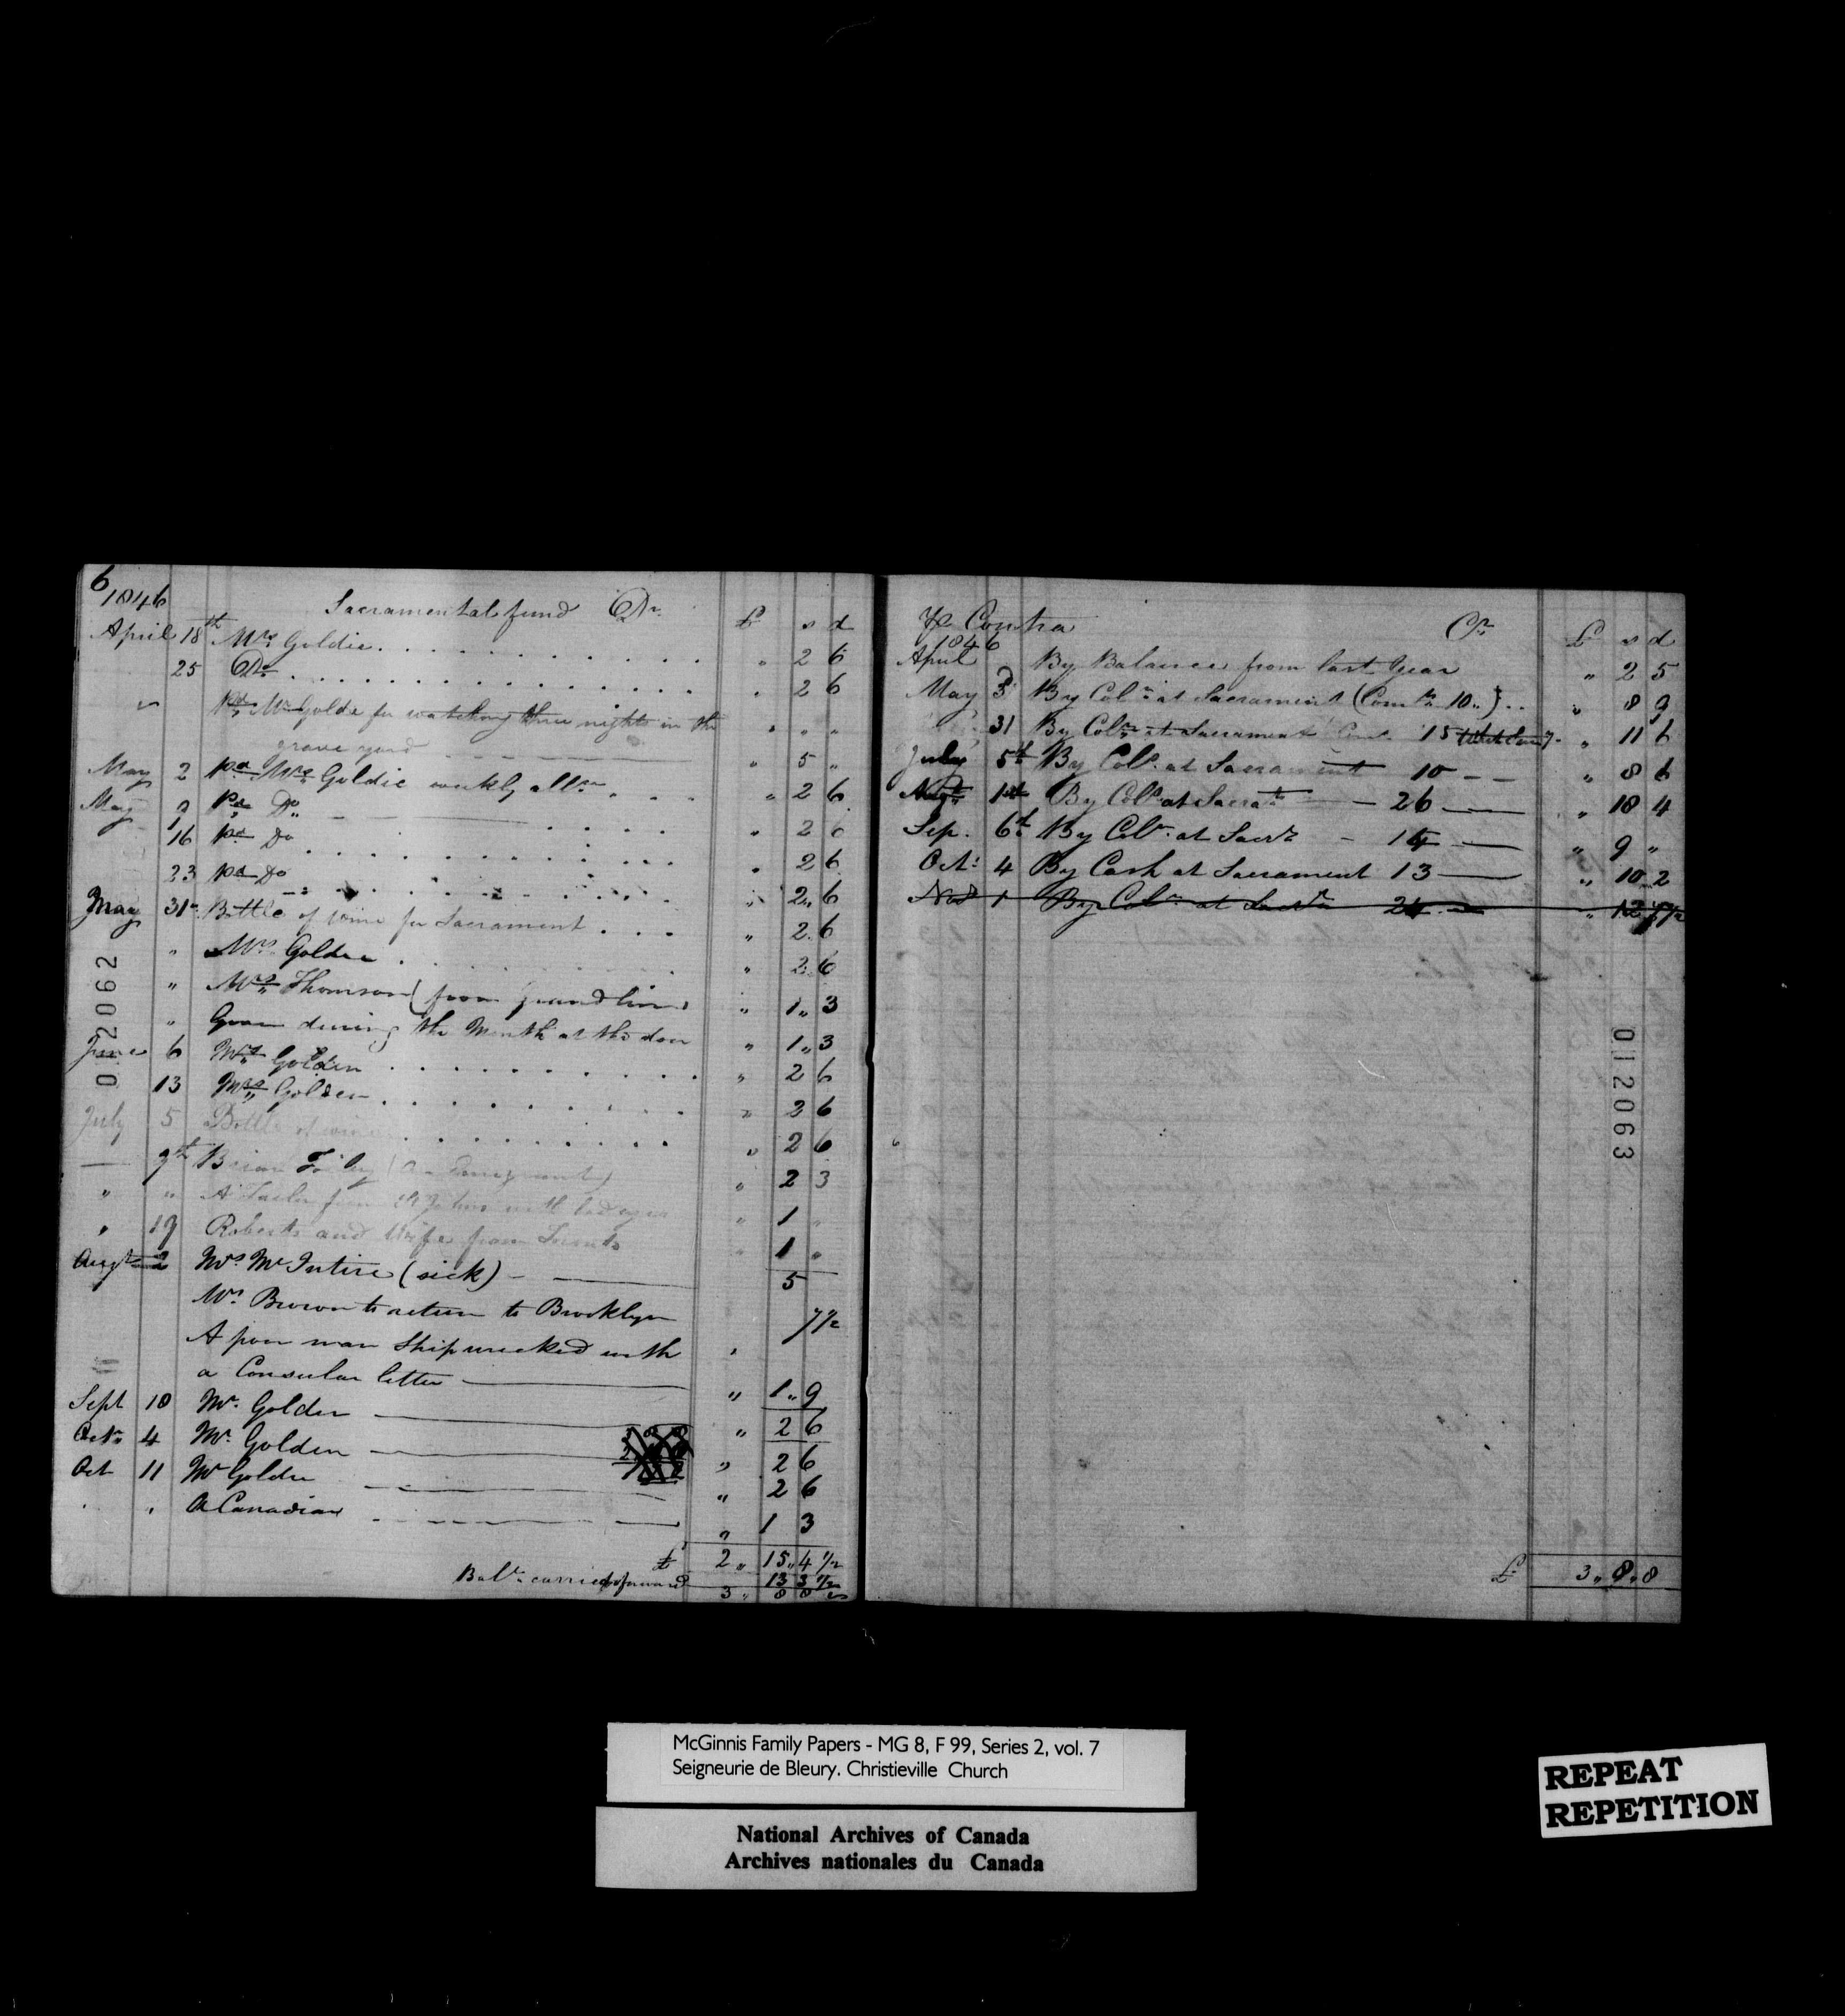 6
1846
Sacramental fund Dr
£ s d
April 18th Mrs Goldie . . . . . . . . . . . " 2 6
25 Do . . . . . . . . . . . . . . " 2 6
" Pd Mr Golde for watching three nights in the " " "
grave yard " 5 "
May 2 Pd Mrs Goldie weekly allce . . . . " 2 6
May 9 Pd Do . . . . " 2 6
16 Pd Do . . . . . . . . . . . . " 2 6
23 Pd Do . . . . . . . " 2 " 6
May 31 Bottle of wine for Sacrament . . . " 2 . 6
" Mrs Golden . . . . . " 2 . 6
" Mrs Thomson (from grand line) " 1 " 3
" Given during the Month at the door " 1 " 3
June 6 Mrs Golden . . . . . . . . . . " 2 6
13 Mrs Golden . . . . . . . . . . " 2 6
July 5 Bottle of wine . . . . . . . . . " 2 6
— 9th Brian (an Emigrant) " 2 3
" " A Sailor from St Johns with bad eyes " 1 "
" 19 Roberts and Wife from Toronto 1 "
Augt 2 Mrs McIntire (sick) — 5
Mrs Brown to return to Brooklyn 7½
A poor man Shipwrecked with "
a Consular letter — " 1 " 9
Sept 10 Mr Golden — " 2 6
Octr 4 Mr Golden — " 2 6
Oct 11 Mr Golden — " 2 6
" " A Canadian — " 1 3
£ 2 " 15 " 4 ½
Balce carried forward 13 3 ½
3 " 8 8
012062
Pr Contra Cr
£ s d
1846
April By Balance from last Year " 2 5
May 3 By Coln at Sacrament (Comts 10 ") . . " 8 9
31 By Coln at Sacrament 15 " 11 6
July 5th By Coln at Sacrament 10 — — " 8 6
Augt 1st By Coln at Sacrat — 26 — " 18 4
Sep. 6th By Coln at Sacrt — 14 — " 9 "
Oct: 4 By Cash at Sacrament 13 — " 10 2
Nov 1 By Coln at Sacrt 24 — " 12 7½
012063
£ 3 " 8 " 8
McGinnis Family Papers - MG 8, F 99, Series 2, vol. 7
Seigneurie de Bleury. Christieville Church
National Archives of Canada
Archives nationales du Canada
REPEAT
REPETITION